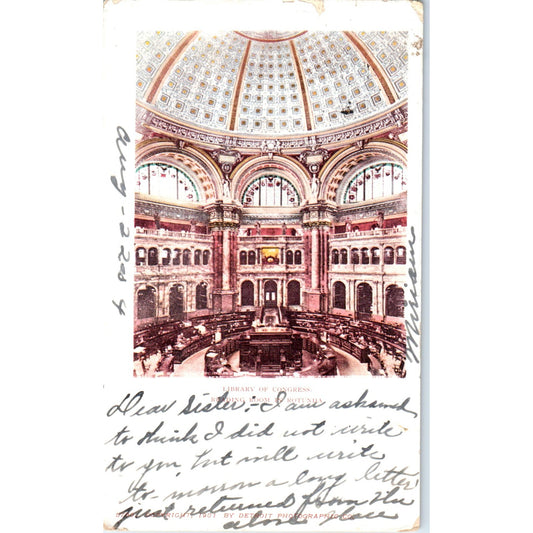 Aug - 22nd 4
Miriam
LIBRARY OF CONGRESS.
READING ROOM IN ROTUNDA.
Dear Sister, - I am ashamed
to think I did not write
to you, but will write
to morrow a long letter
just returned from the
above place
RIGHT, 1901 BY DETROIT PHOTOGRAPHIC